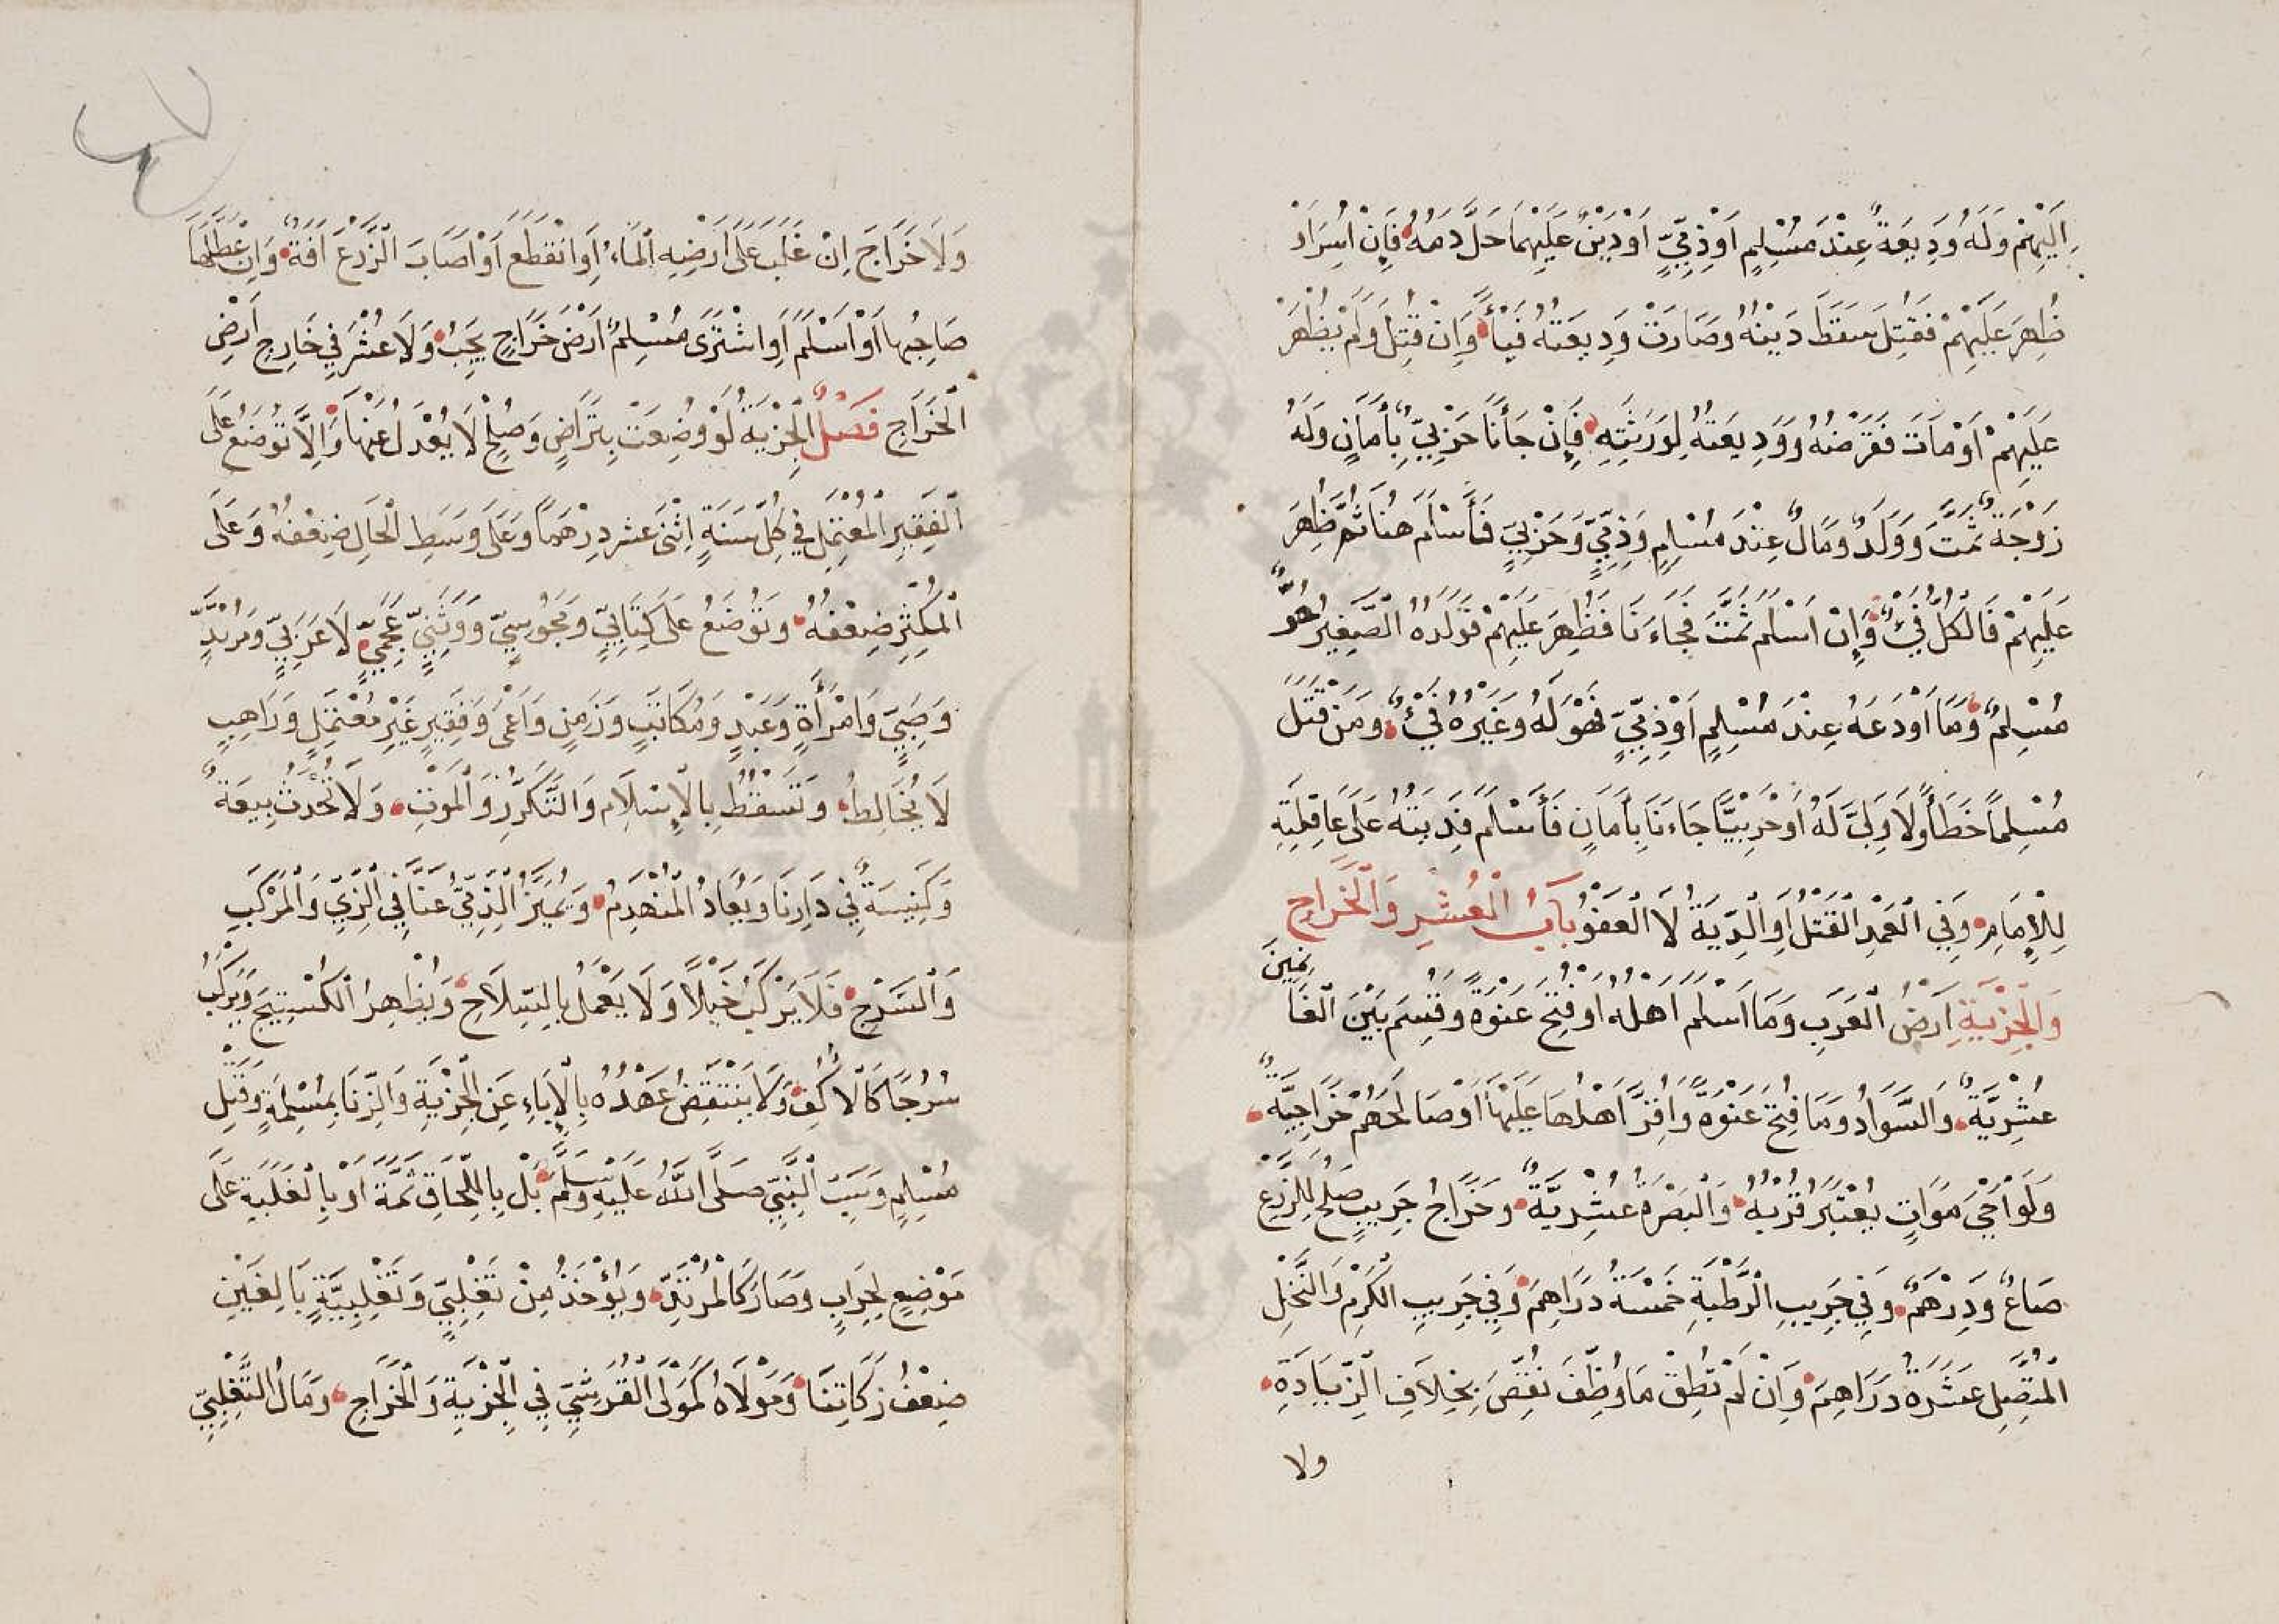 إِلَيْهِمْ وَلَهُ وَدِيعَةٌ عِنْدَ مُسْلِمٍ اَوْ ذِمِّيٍّ اَوْ دَيْنٌ عَلَيْهِمَا حَلَّ دَمُهُ فَإِنْ اُسِرَ اَوْ
ظُهِرَ عَلَيْهِمْ فَقُتِلَ سَقَطَ دَيْنُهُ وَصَارَتْ وَدِيعَتُهُ فَيْأً وَإِنْ قُتِلَ وَلَمْ يَظْهَرْ
عَلَيْهِمْ اَوْ مَاتَ فَقَرْضُهُ وَوَدِيعَتُهُ لِوَرَثَتِهِ فَإِنْ جَأَنَا حَرْبِيٌّ بِأَمَانٍ وَلَهُ
زَوْجَةٌ ثَمَّتَ وَوَلَدٌ وَمَالٌ عِنْدَ مُسْلِمٍ وَذِمِّيٍّ وَحَرْبِيٍّ فَأَسْلَمَ هُنَا ثُمَّ ظُهِرَ
عَلَيْهِمْ فَالْكُلُّ فَيْءٌ وَإِنْ اَسْلَمَ ثَمَّتَ فَجَاءَنَا فَظُهِرَ عَلَيْهِمْ فَوَلَدُهُ الْصَّغِيرُ حُرٌّ
مُسْلِمٌ وَمَا اَوْدَعَهُ عِنْدَ مُسْلِمٍ اَوْ ذِمِّيٍّ فَهُوَ لَهُ وَغَيْرُهُ فَيْءٌ وَمَنْ قَتَلَ
مُسْلِمًا خَطَأً وَلَا وَلِيَّ لَهُ اَوْ حَرْبِيًّا جَاءَنَا بِأَمَانٍ فَأَسْلَمَ فَدِيَتُهُ عَلَى عَاقِلَتِهِ
لِلْإِمَامِ وَفِي الْعَمْدِ الْقَتْلُ اَوِ الْدِّيَةُ لَا الْعَفْوُ بَابُ الْعُشْرِ وَالْخَرَاجِ
وَالْجِزْيَةِ اَرْضُ الْعَرَبِ وَمَا اَسْلَمَ اَهْلُهُ اَوْ فُتِحَ عَنْوَةً وَقُسِمَ بَيْنَ الْغَا
نِمِينَ
عُشْرِيَّةٌ وَالسَّوَادُ وَمَا فُتِحَ عَنْوَةً وَاُقِرَّ اَهْلُهَا عَلَيْهَا اَوْ صَالَحَهُمْ خَرَاجِيَّةٌ
وَلَوْ اُحْيَ مَوَاتٍ يُعْتَبَرُ قُرْبُهُ وَالْبَصْرَةُ عُشْرِيَّةٌ وَخَرَاجُ جَرِيبٍ صَلُحَ لِلزَّرْعِ
صَاعٌ وَدِرْهَمٌ وَفِي جَرِيبِ الْرَّطْبَةِ خَمْسَةُ دَرَاهِمَ وَفِي جَرِيبِ الْكَرْمِ وَالنَّخْلِ
الْمُتَّصِلِ عَشَرَةُ دَرَاهِمَ وَإِنْ لَمْ تُطِقْ مَا وُظِّفَ نُقِّصَ بِخِلَافِ الْزِّيَادَةِ
ولا
وَلَا خَرَاجَ اِنْ غَلَبَ عَلَى اَرْضِهِ الْمَاءُ اَوِ انْقَطَعَ اَوْ اَصَابَ الْزَّرْعَ اٰفَةٌ وَاِنْ عَطَّلَهَا
صَاحِبُهَا اَوْ اَسْلَمَ اَوِ اشْتَرَى مُسْلِمٌ اَرْضَ خَرَاجٍ يَجِبُ وَلَا عُشْرَ فِي خَارِجِ اَرْضِ
الْخَرَاجِ فَصْلٌ الْجِزْيَةُ لَوْ وُضِعَتْ بِتَرَاضٍ وَصُلْحٍ لَا يُعْدَلُ عَنْهَا وَاِلَّا تُوضَعُ عَلَى
الْفَقِيرِ الْمُعْتَمِلِ فِي كُلِّ سَنَةٍ اِثْنَى عَشَرَ دِرْهَمًا وَعَلَى وَسَطِ الْحَالِ ضِعْفُهُ وَعَلَى
الْمُكْثِرِ ضِعْفُهُ وَتُوضَعُ عَلَى كِتَابِيٍّ وَمَجُوسِيٍّ وَوَثَنِيٍّ عَجَمِيٍّ لَا عَرَبِيٍّ وَمُرْتَدٍّ
وَصَبِيٍّ وَامْرَأَةٍ وَعَبْدٍ وَمُكَاتَبٍ وَزَمِنٍ وَاَعْمَى وَفَقِيرٍ غَيْرِ مُعْتَمِلٍ وَرَاهِبٍ
لَا يُخَالِطُ وَتَسْقُطُ بِالْاِسْلَامِ وَالتَّكَرُّرِ وَالْمَوْتِ وَلَا تُحْدَثُ بِيعَةٌ
وَكَنِيسَةٌ فِي دَارِنَا وَيُعَادُ الْمُنْهَدِمُ وَيُمَيَّزُ الْذِّمِّيُّ عَنَّا فِي الْزِّيِّ وَالْمَرْكَبِ
وَالْسَّرْجِ فَلَا يَرْكَبُ خَيْلًا وَلَا يَعْمَلُ بِالسِّلَاحِ وَيُظْهِرُ الْكُسْتِيجَ وَيَرْكَبُ
سُرُجًا كَالْاُكُفِ وَلَا يَنْتَقِضُ عَهْدُهُ بِالْإِبَاءِ عَنِ الْجِزْيَةِ وَالزِّنَا بِمُسْلِمَةٍ وَقَتْلِ
مُسْلِمٍ وَسَبِّ الْنَّبِيِّ صَلَّى اللّٰهُ عَلَيْهِ وَسَلَّمَ بَلْ بِاللِّحَاقِ ثَمَّةَ اَوْ بِالْغَلَبَةِ عَلَى
مَوْضِعٍ لِحِرَابٍ وَصَارَ كَالْمُرْتَدِّ وَيُؤْخَذُ مِنْ تَغْلِبِيٍّ وَتَغْلِبِيَّةٍ بَالِغَيْنِ
ضِعْفُ زَكَاتِنَا وَمَوْلَاهُ كَمَوْلَى الْقُرَشِيِّ فِي الْجِزْيَةِ وَالْخَرَاجِ وَمَالُ التَّغْلِبِيِّ